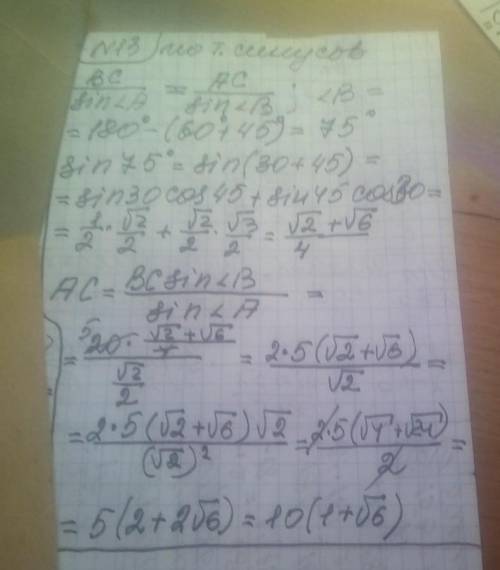 N13) по т. синусов
BC/sin∠A = AC/sin∠B ; ∠B =
= 180° - (60° + 45°) = 75°
sin 75° = sin(30 + 45) =
= sin30 cos45 + sin45 cos30 =
= 1/2 · √2/2 + √2/2 · √3/2 = (√2 + √6)/4
AC = BC sin∠B / sin∠A =
= (20 · (√2 + √6)/4) / (√2/2) = 2·5(√2 + √6)/√2 =
= 2·5(√2 + √6)√2/(√2)² = 2·5(√4 + √24)/2 =
= 5(2 + 2√6) = 10(1 + √6)